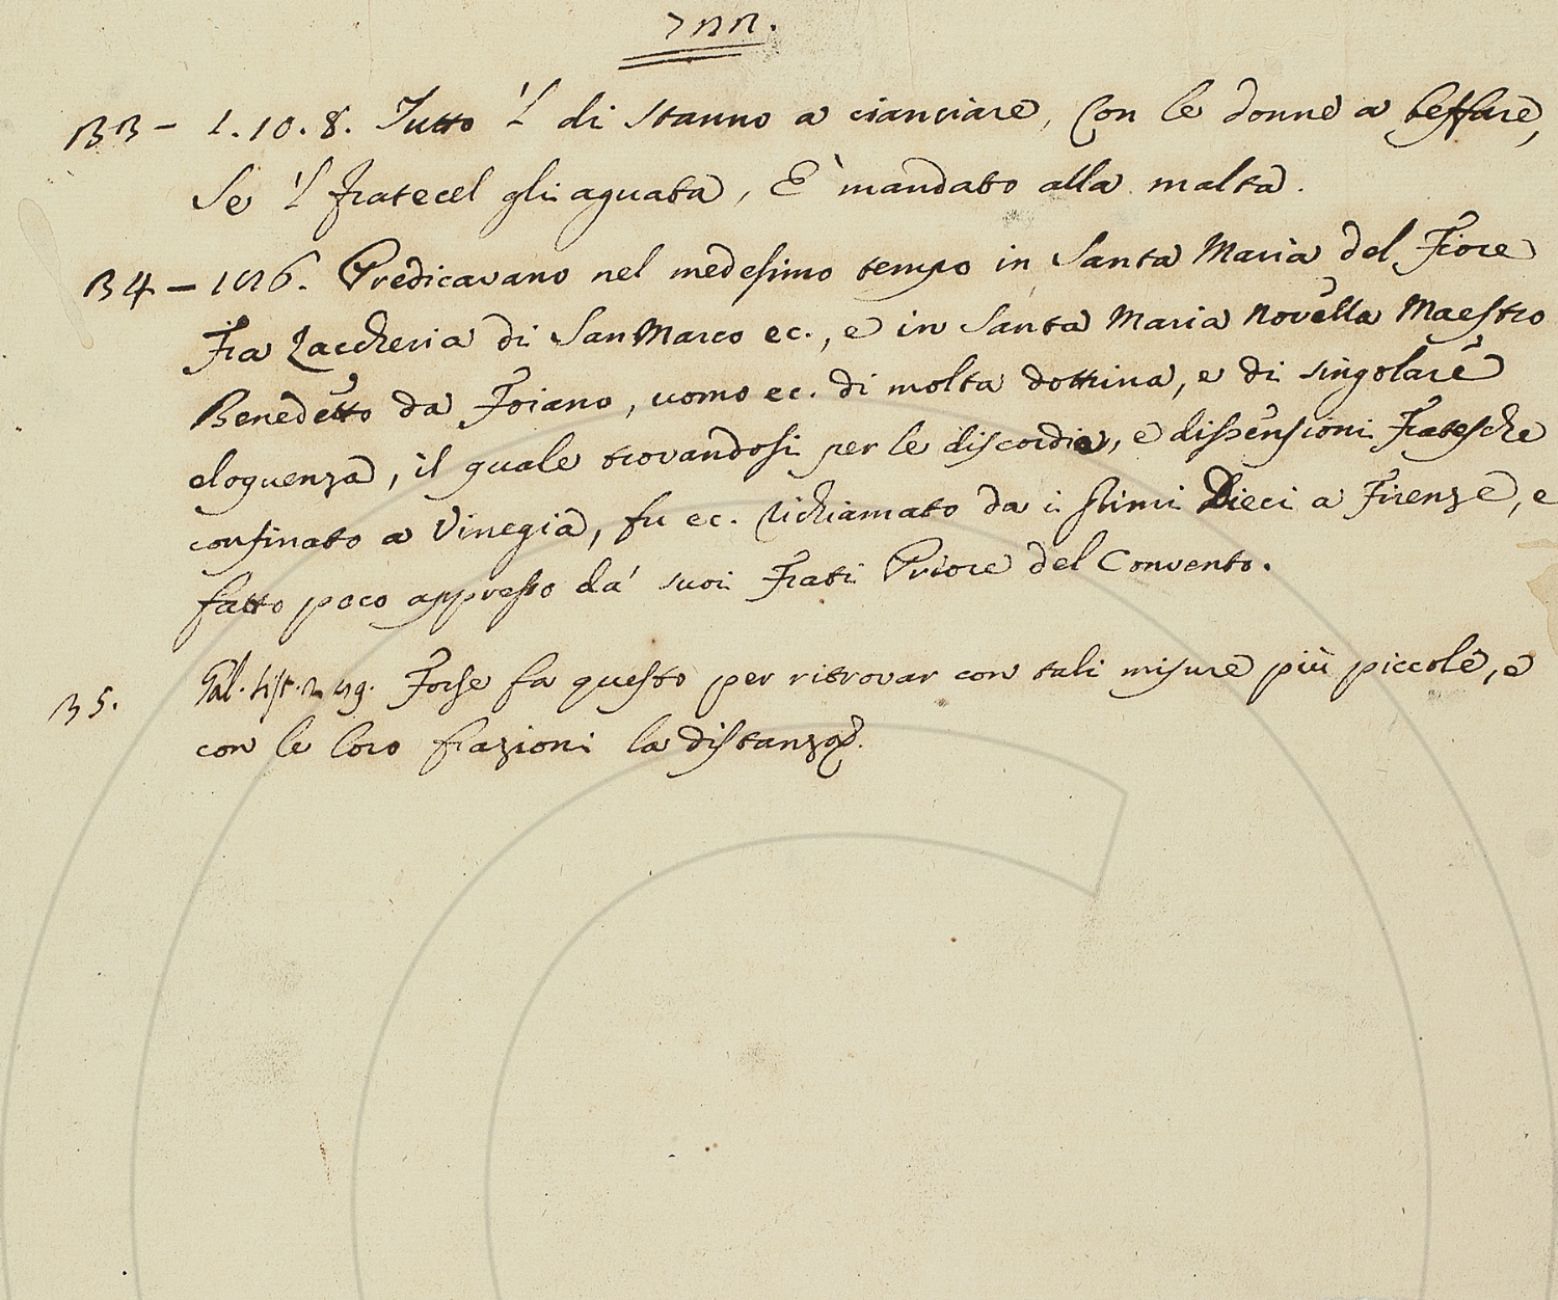 722.
33 - 1.10.8. Tutto 'l di stanno a cianciare, Con le donne a beffare,
Se 'l fratecel gli aguata, È mandato alla malta.
34 - 126. Predicavano nel medesimo tempo in Santa Maria del Fiore
Fra Zaccheria di San Marco ec., e in Santa Maria Novella Maestro
Benedetto da Foiano, uomo ec. di molta dottrina, e di singolare
eloquenza, il quale trovandosi per le discordie, e dissensioni Fratesche
confinato a Vinegia, fu ec. richiamato da i Dieci a Firenze, e
fatto poco appresso da' suoi Frati Priore del Convento.
35. Gal. Sist. Forse fa questo per ritrovar con tali misure più piccole, e
con le loro frazioni la distanza.